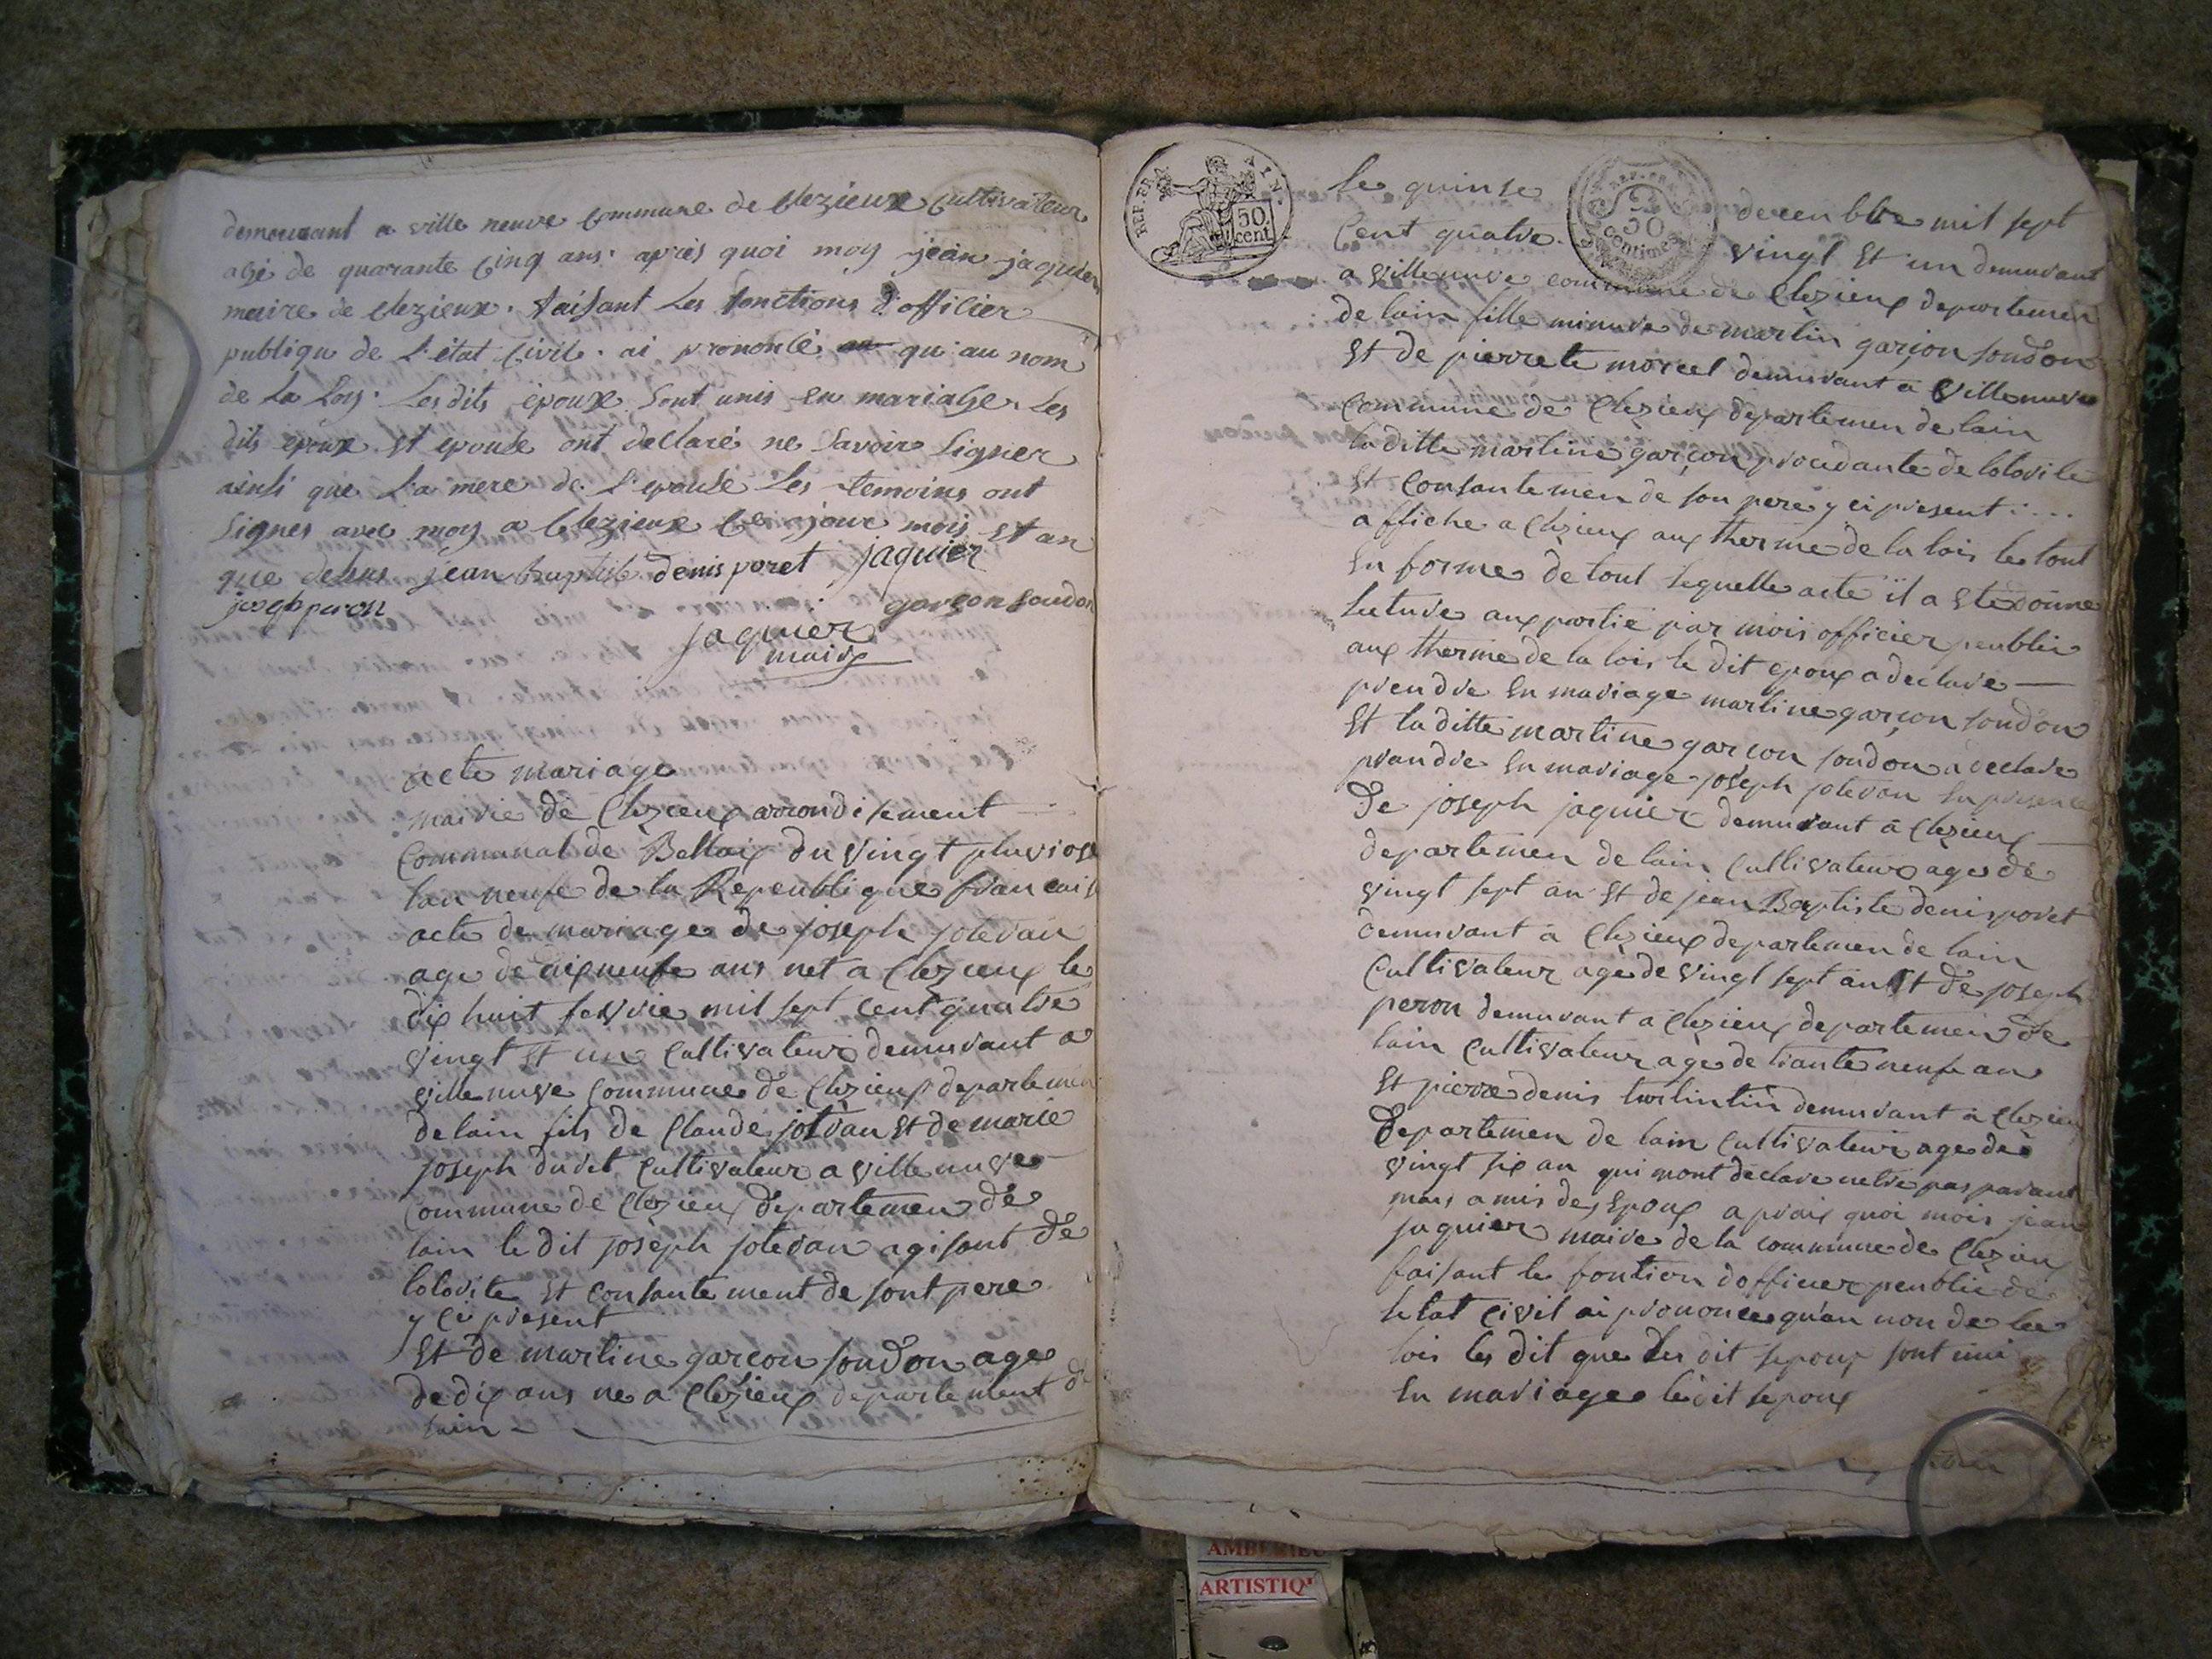 demeurant a ville neuve commune de Clezieux cultivateur
agé de quarante cinq ans. après quoi moy jean jaquier
maire de Clezieux. faisant les fonctions d'officier
publique de l'état Civile. ai prononcé qu'au nom
de La Loy. Lesdits époux sont unis en mariage. Les
dits époux et epouse ont declaré ne savoir signer
ainsi que La mere de L'epouse Les temoins ont
signes avec moy a Clezieux les jour mois et an
que dessus jean baptiste denis poret jaquier
joseph peron garçon soudon
jaquier
maire
acte mariage
mairie de Clezieux arrondisement
Communal de Bellaix du vingt pluviose
lan neufe de la Repeublique francaise
acte de mariage de joseph jolevan
age de dixneufe ans net a Clezieux le
dix huit fevrie mil sept cent quatre
vingt et un cultivateur demurant a
ville nuve commune de Clezieux departemen
de lain fils de Claude jolvan et de marie
joseph duret cultivateur a ville nuve
commune de Clezieux departemen de
lain le dit joseph jolevan agisant de
lotorite et consantement de sont pere
y ci present
Et de martine garcon soudon age
de dix ans ne a Clezieux departement de
lain
REP. FRA
50 cent
REP. FRA
50 centimes
le quinse decenbbre mil sept
Cent quatre vingt et un demurant
a ville nuve commune de Clezieux departemen
de lain fille minure de martin garçon soudon
et de pierrete morel demurant a ville nuve
commune de Clezieux departemen de lain
la ditte martine garçon procedante de lotorite
et consantemen de son pere y ci present
affiche a Clezieux aux therme de la lois le tout
en forme de tout lequelle acte il a ete donne
lecture aux partie par mois officier peublic
aux therme de la lois le dit epoux a declare
prendre en mariage martine garçon soudon
et la ditte martine garcon soudon a declare
prandre en mariage joseph jolevan en presence
de joseph jaquier demurant a Clezieux
departemen de lain cultivateur age de
vingt sept an et de jean Baptiste denis poret
demurant a Clezieux departemen de lain
cultivateur age de vingt sept an et de joseph
peron demurant a Clezieux departemen de
lain cultivateur age de trante neufe an
et pierre denis turlintin demurant a Clezieux
departemen de lain cultivateur age de
vingt six an qui mont declare netre pas parant
mais amis des epoux apraix quoi mois jean
jaquier maire de la commune de Clezieux
faisant le fontion dofficier peublic de
letat civil ai prononce quau non de la
lois les dit que les dit sepoux sont uni
en mariage le dit sepoux
AMBERIEU
ARTISTIQ